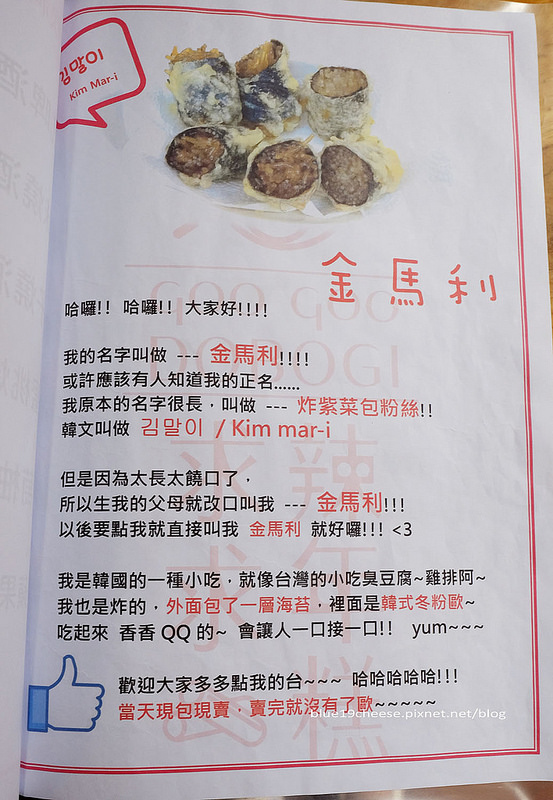 김말이
Kim Mar-i
金馬利
哈囉!! 哈囉!! 大家好!!!!
我的名字叫做 --- 金馬利!!!!
或許應該有人知道我的正名......
我原本的名字很長，叫做 --- 炸紫菜包粉絲!!
韓文叫做 김말이 / Kim mar-i
但是因為太長太饒口了，
所以生我的父母就改口叫我 --- 金馬利!!!
以後要點我就直接叫我 金馬利 就好囉!!! <3
我是韓國的一種小吃，就像台灣的小吃臭豆腐~雞排阿~
我也是炸的，外面包了一層海苔，裡面是韓式冬粉歐~
吃起來 香香 QQ 的~ 會讓人一口接一口!! yum~~~
歡迎大家多多點我的台~~~ 哈哈哈哈哈!!!
當天現包現賣，賣完就沒有了歐~~~~~
blue19cheese.pixnet.net/blog
GOO GOO
DOPOGI
辣年糕